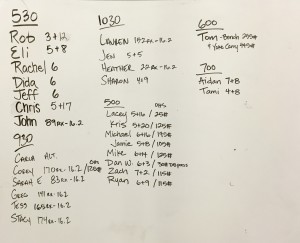 530
Rob 3+12
Eli 5+8
Rachel 6
Dida 6
Jeff 6
Chris 5+17
John 89RX-16.2
930
Carla Alt.
Corey 170RX-16.2/
Sarah E 83RX-16.2
Greg 141RX-16.2
Tess 165RX-16.2
Stacy 174RX-16.2
1030
Lauren 152RX-16.2
Jen 5+5
Heather 22RX-16.2
Sharon 4+9
500
Lacey 5+16/25#
Kris 5+20/125#
Michael 6+16/195#
Jamie 5+8/105#
Mike 6+4/125#
Dan W. 6+3/
Zach 7+2/115#
Ryan 6+9/115#
600
Tom-Bench 255#
& Yoke Carry 545#
700
Aidan 7+8
Tami 4+8